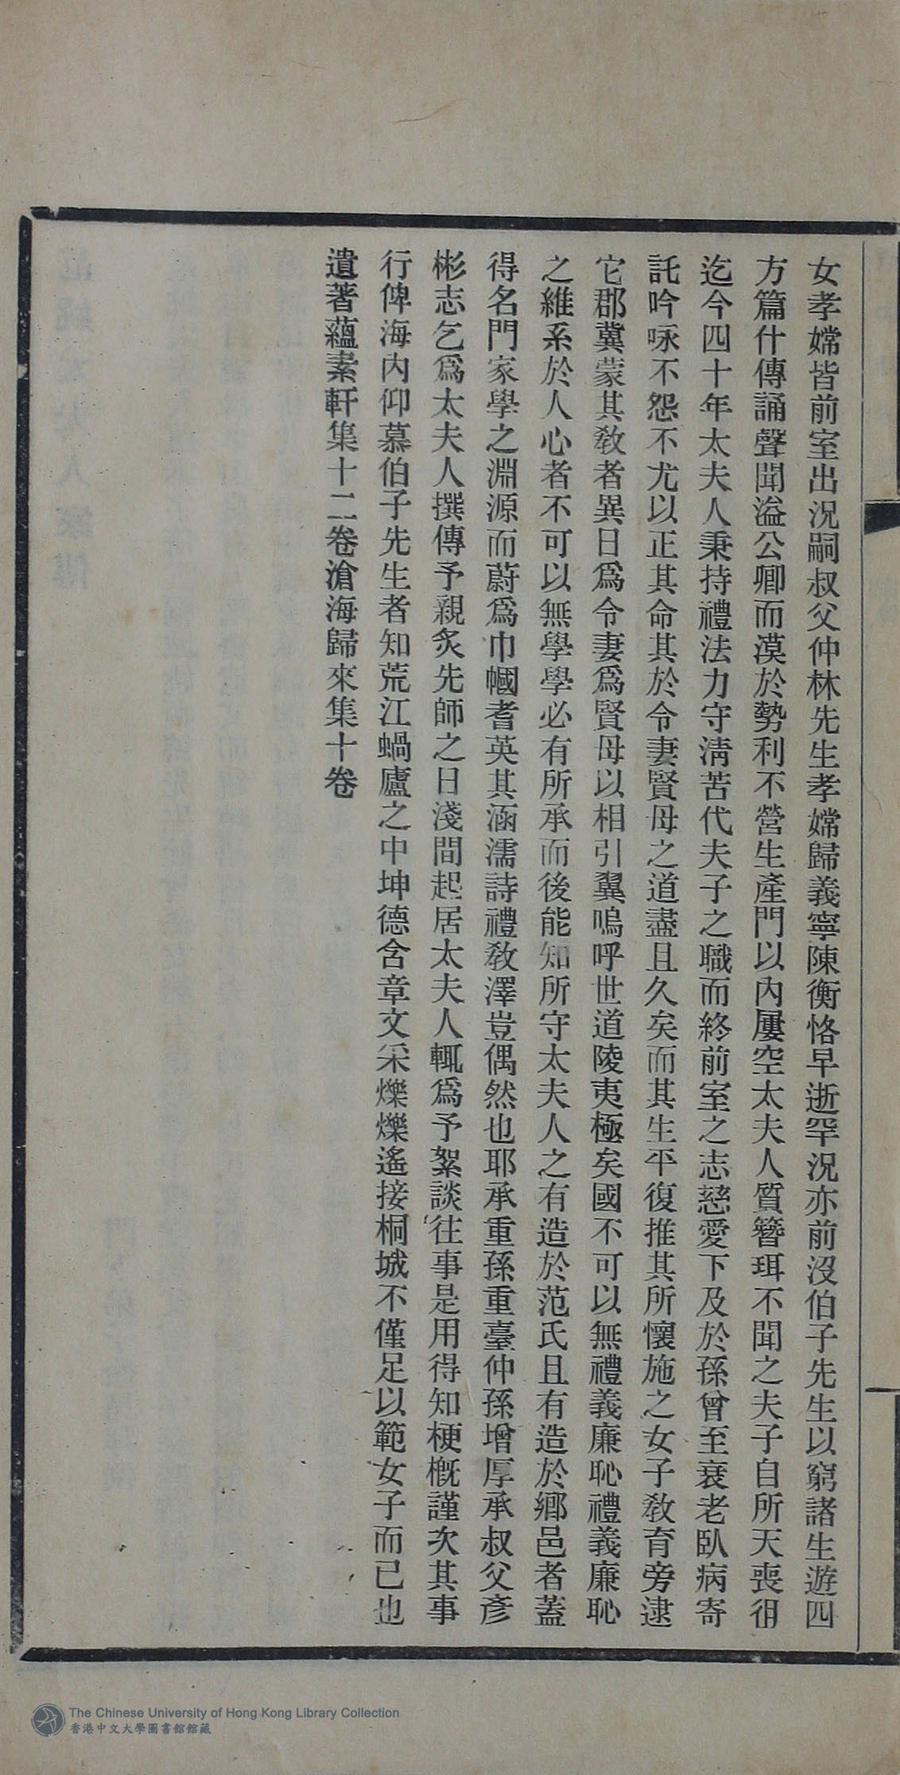 女孝嫦皆前室出況嗣叔父仲林先生孝嫦歸義寧陳衡恪早逝罕況亦前沒伯子先生以窮諸生遊四
方篇什傳誦聲聞溢公卿而漠於勢利不營生產門以內屢空太夫人質簪珥不聞之夫子自所天喪徂
迄今四十年太夫人秉持禮法力守清苦代夫子之職而終前室之志慈愛下及於孫曾至衰老臥病寄
託吟咏不怨不尤以正其命其於令妻賢母之道盡且久矣而其生平復推其所懷施之女子教育旁逮
它郡冀蒙其教者異日爲令妻爲賢母以相引翼嗚呼世道陵夷極矣國不可以無禮義廉恥禮義廉恥
之維系於人心者不可以無學學必有所承而後能知所守太夫人之有造於范氏且有造於鄉邑者蓋
得名門家學之淵源而蔚爲巾幗耆英其涵濡詩禮教澤豈偶然也耶承重孫重臺仲孫增厚承叔父彥
彬志乞爲太夫人撰傳予親炙先師之日淺間起居太夫人輒爲予絮談往事是用得知梗槪謹次其事
行俾海內仰慕伯子先生者知荒江蝸廬之中坤德含章文采爍爍遙接桐城不僅足以範女子而已也
遺著蘊素軒集十二卷滄海歸來集十卷
The Chinese University of Hong Kong Library Collection
香港中文大學圖書館館藏